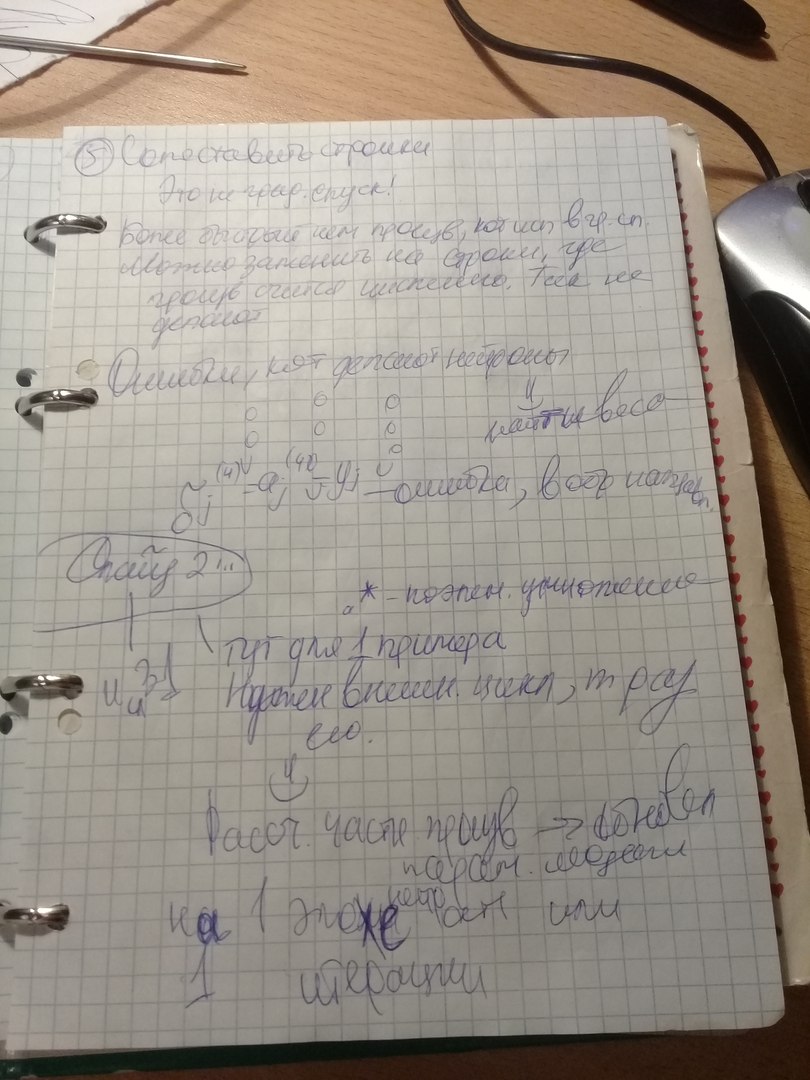 ⑤ Сопоставить строчки
Это не град. спуск!
Более быстрый чем произв, кот исп в гр. сп.
Можно заменить на строки, где
произв счит численно. Так не
делают
Ошибки, кот делают нейроны
найти веса
δj(4) = aj(4) - yj — ошибка, в обр направл.
Слайд 2...
.* - поэлем. умножение
тут для 1 примера
Нужен внешн. цикл, m раз
его.
Рассч. частн. произв → обновл
парам. модели
нейро
на 1 эпохе или
1 итерации